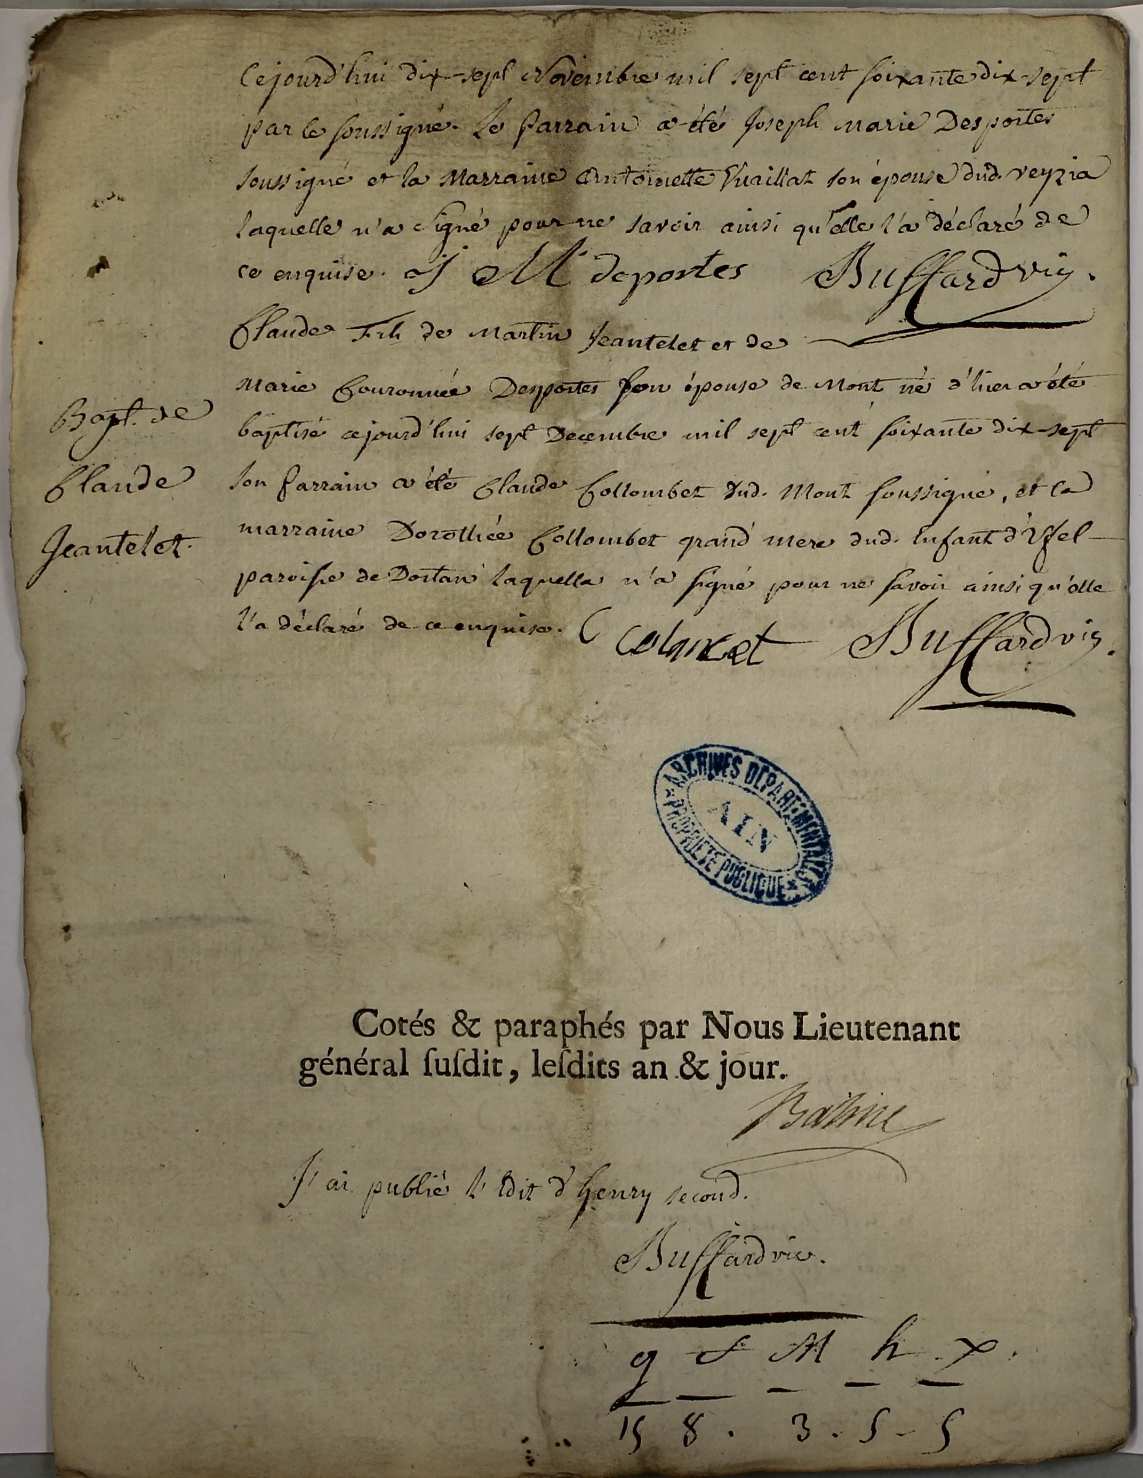 Cejourd'hui dix-sept Novembre mil sept cent soixante dix-sept
par le soussigné. Le Parrain a été Joseph Marie Desportes
soussigné et la Marraine Antoinette Vuaillat son épouse dud. veyzia
laquelle n'a signé pour ne savoir ainsi qu'elle l'a déclaré de
ce enquise. J M deportes Buffard vic.
Claude Fils de Martin Jeantelet et de
Marie Couronnée Desportes son épouse de Mont né d'hier a été
Bapt. de
baptisé cejourd'hui sept Decembre mil sept cent soixante dix-sept
Claude
son Parrain a été Claude Collombet dud. Mont soussigné, et la
Jeantelet.
marraine Dorothée Collombet grand'mere dud. Enfant d'Yssel
paroisse de Dortan laquelle n'a signé pour ne savoir ainsi qu'elle
l'a déclaré de ce enquise. C Buffard vic.
ARCHIVES DEPARTEMENTALES
AIN
PROPRIÉTÉ PUBLIQUE
Cotés & paraphés par Nous Lieutenant
général susdit, lesdits an & jour.
J'ai publié l'Edit d'henry second.
Buffard vic.
g S M h x.
15 8. 3. 5 - 5